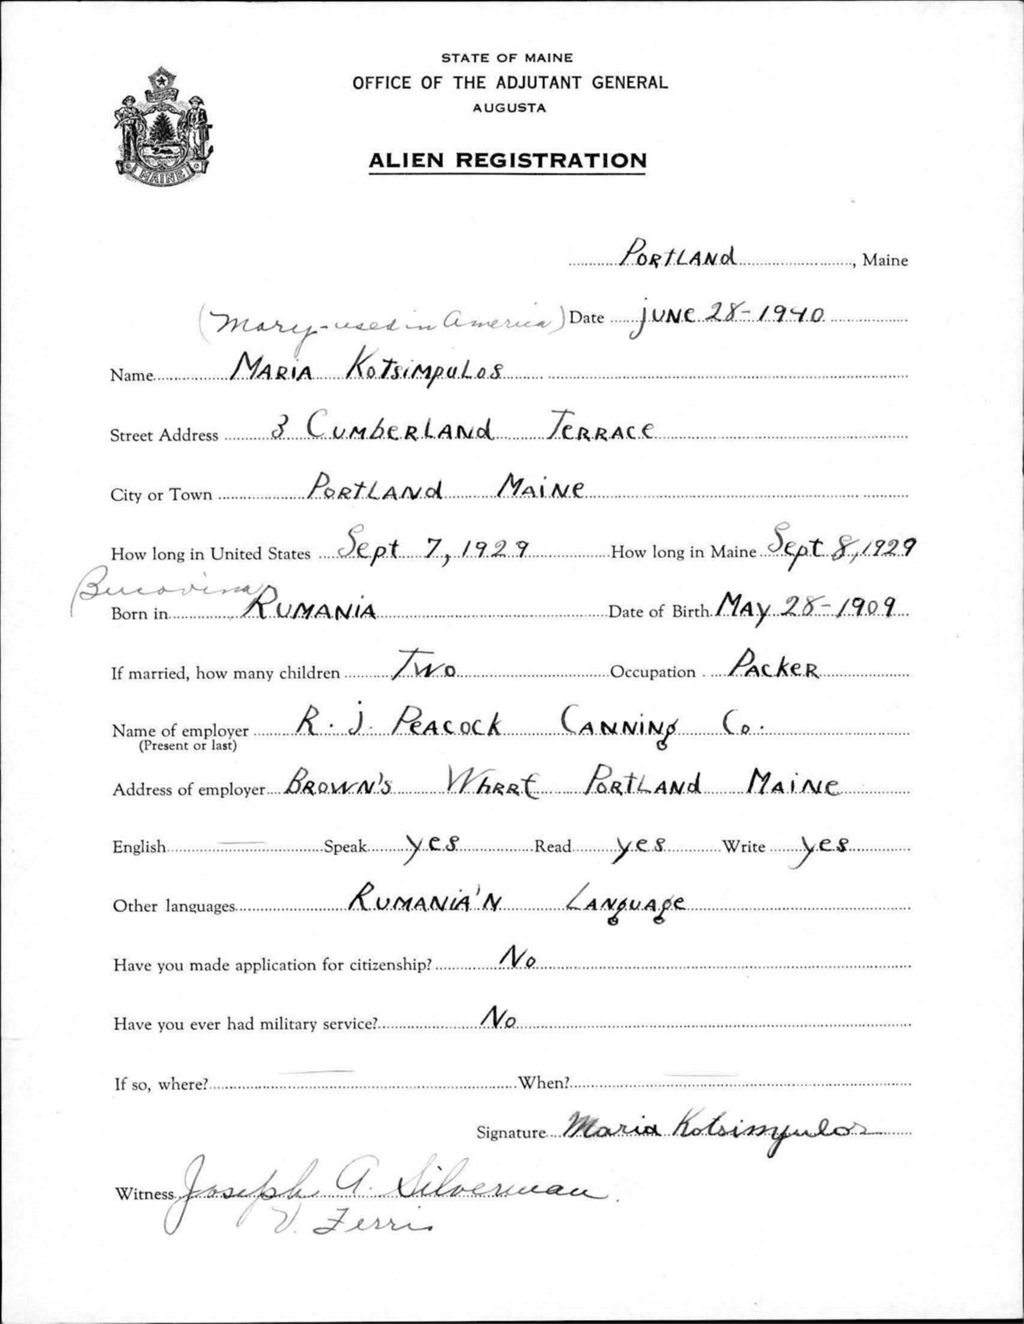 STATE OF MAINE
OFFICE OF THE ADJUTANT GENERAL
AUGUSTA
ALIEN REGISTRATION
MAINE
Portland, Maine
(Mary-used in America) Date June 28-1940
Name Maria Kotsimpulos
Street Address 3 Cumberland Terrace
City or Town Portland Maine
How long in United States Sept 7, 1929 How long in Maine Sept 8, 1929
(Bucovina)
Born in Rumania Date of Birth May 28-1909
If married, how many children Two Occupation Packer
Name of employer R. J. Peacock Canning Co.
(Present or last)
Address of employer Brown's Wharf Portland Maine
English Speak yes Read yes Write yes
Other languages Rumania'n Language
Have you made application for citizenship? No
Have you ever had military service? No
If so, where? When?
Signature Maria Kotsimpulos
Witness Joseph A. Silverman
V. Ferris